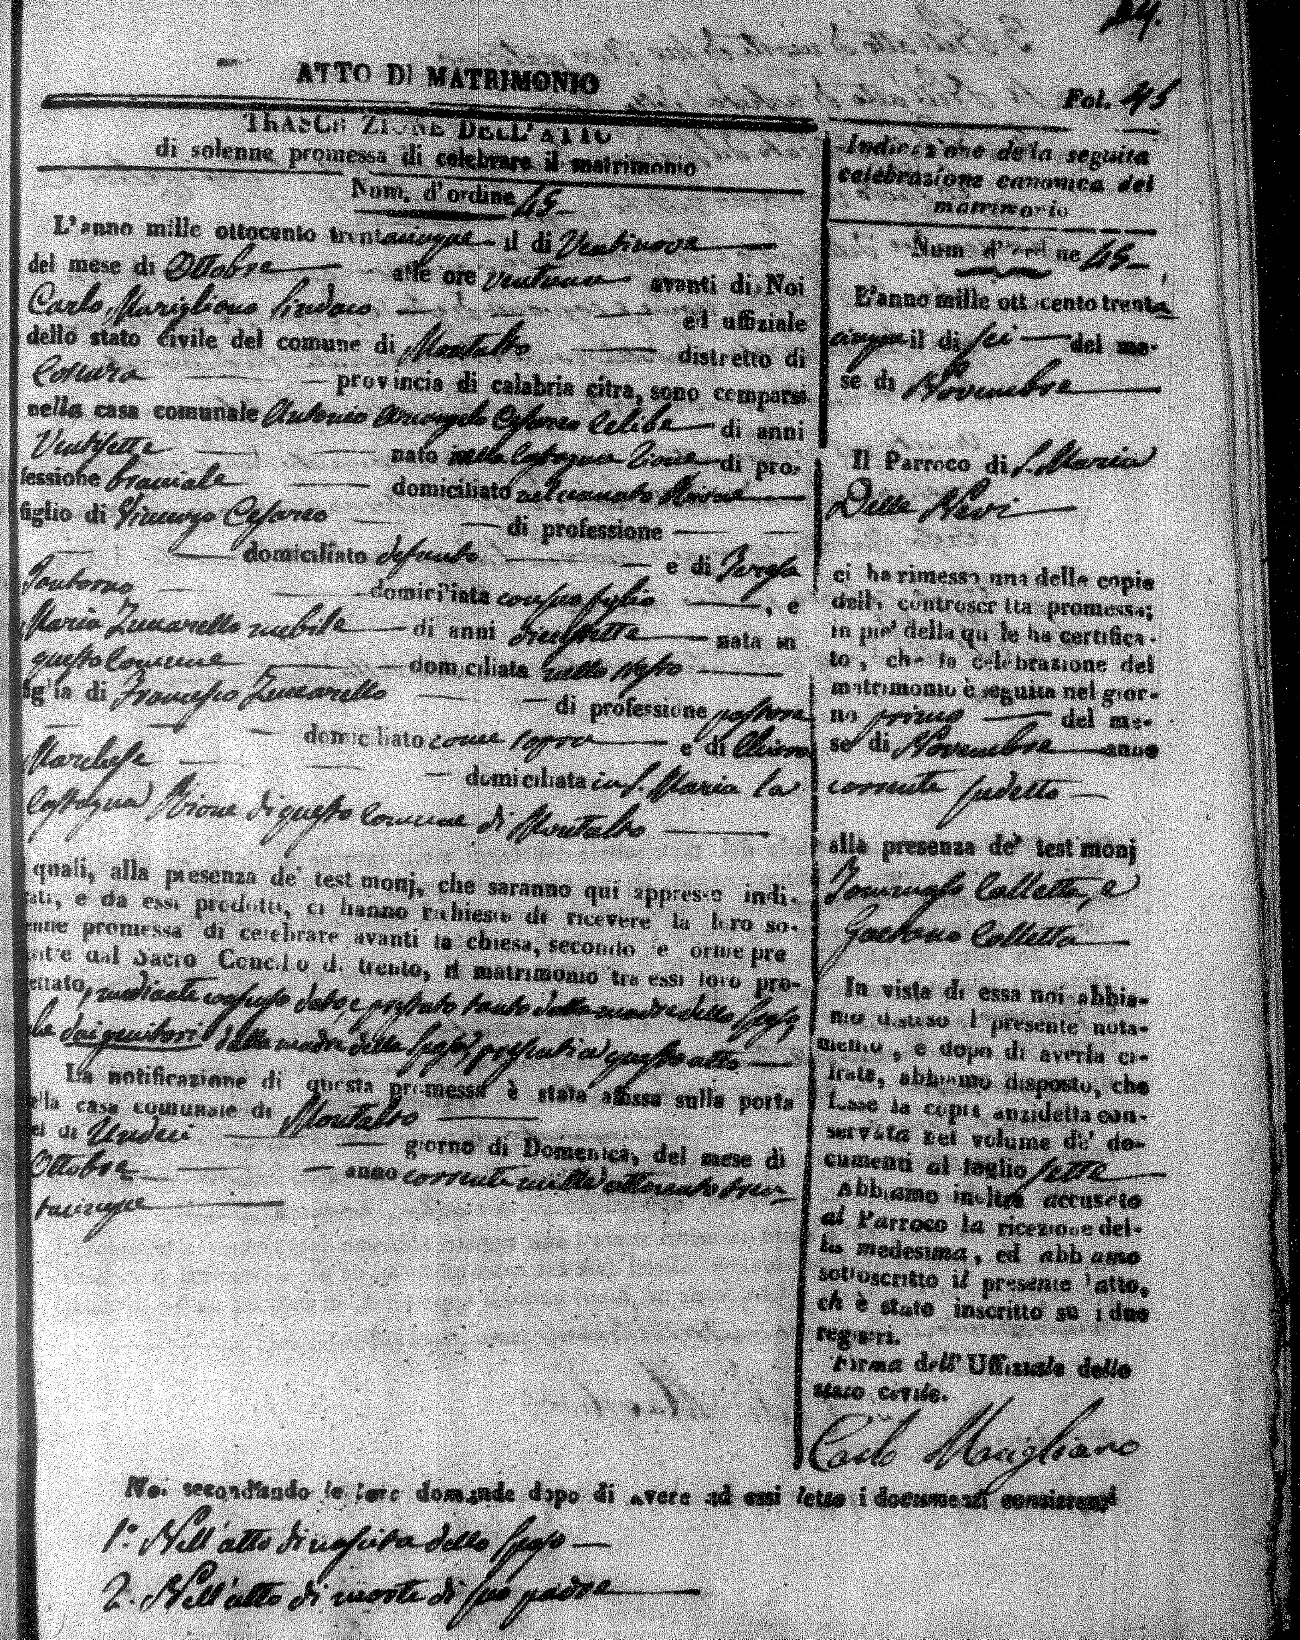 24.
ATTO DI MATRIMONIO
Fol. 45
TRASCRIZIONE DELL'ATTO
di solenne promessa di celebrare il matrimonio
Num. d'ordine 45
L'anno mille ottocento trentacinque il di Ventinove
del mese di Ottobre alle ore ventuna avanti di Noi
Carlo Marigliano Sindaco ed uffiziale
dello stato civile del comune di Montalto distretto di
Cosenza provincia di calabria citra, sono comparsi
nella casa comunale Antonio Arcangelo Cesareo Celibe di anni
Ventisette nato nella Castagna Rione di pro-
fessione bracciale domiciliato nel cennato Rione
figlio di Vincenzo Cesareo di professione
domiciliato defunto e di Teresa
domiciliata con suo figlio , e
Maria Zuccarello nubile di anni diecisette nata in
questo Comune domiciliata nello stesso
figlia di Francesco Zuccarello di professione pastore
domiciliato come sopra e di Chiara
Marchese domiciliata in S. Maria la
Castagna Rione di questo Comune di Montalto
quali, alla presenza de' testimonj, che saranno qui appresso indi-
cati, e da essi prodotti, ci hanno richiesto di ricevere la loro so-
lenne promessa di celebrare avanti la chiesa, secondo le forme pre
scritte dal Sacro Concilio di trento, il matrimonio tra essi loro pro-
gettato, mediante consenso dato, e prestato tanto dalla madre dello Sposo,
che dai genitori dalla madre della Sposa, presenti a questo atto
La notificazione di questa promessa è stata affissa sulla porta
della casa comunale di Montalto
nel di Undeci giorno di Domenica, del mese di
Ottobre anno corrente mille ottocento tren
tacinque
Noi secondando le loro domande dopo di avere ad essi letto i documenti consistenti
1.° Nell'atto di nascita dello Sposo
2. Nell'atto di morte di suo padre
Indicazione della seguita
celebrazione canonica del
matrimonio
Num d'ordine 45
L'anno mille ottocento trenta
cinque il di sei del me-
se di Novembre
Il Parroco di S. Maria
Della Nevi
ci ha rimessa una delle copie
della controscritta promessa;
in pie' della quale ha certifica-
to, che la celebrazione del
matrimonio è seguita nel gior-
no primo del me-
se di Novembre anno
corrente sudetto
alla presenza de' testimonj
Tommaso Colletta, e
Gaetano Colletta
In vista di essa noi abbia-
mo disteso il presente nota-
mento, e dopo di averla ci-
frata, abbiamo disposto, che
fosse la copia anzidetta con-
servata nel volume de' do-
cumenti al foglio sette
Abbiamo inoltre accusato
al Parroco la ricezione del-
la medesima, ed abbiamo
sottoscritto il presente atto,
ch' è stato inscritto su i due
registri.
Firma dell' Uffiziale dello
stato civile.
Carlo Marigliano